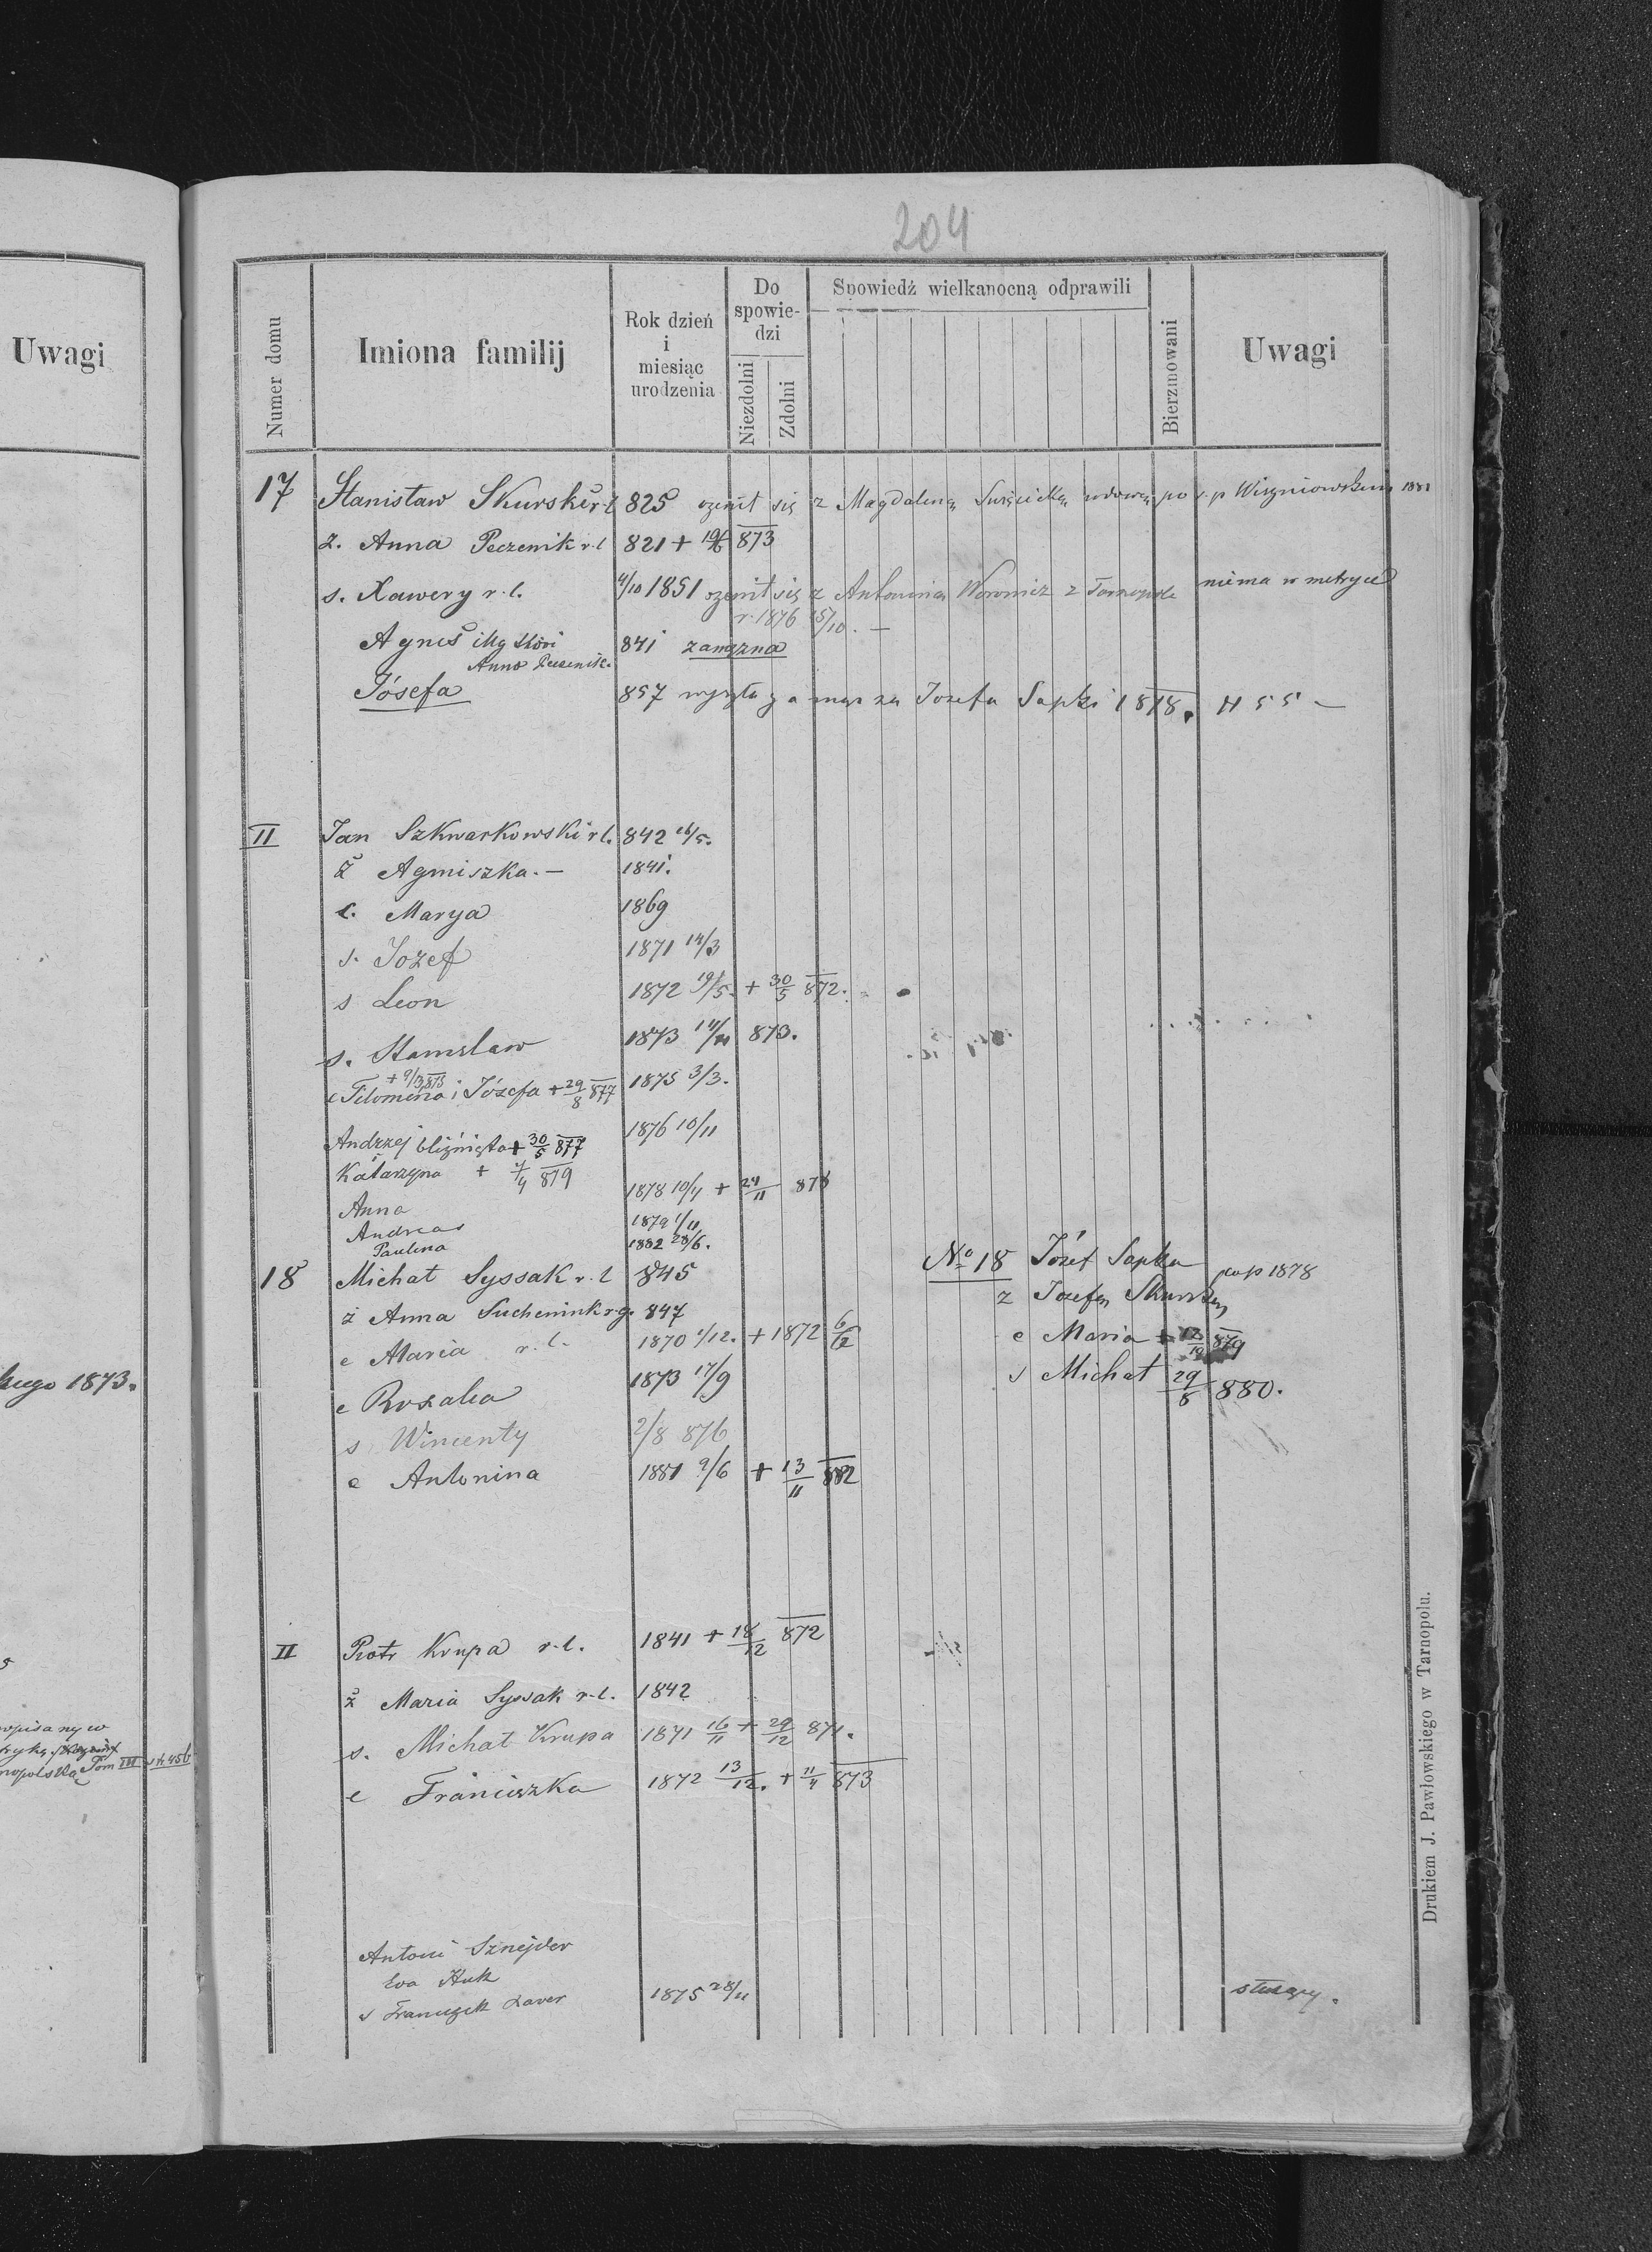 204
Uwagi
Numer domu
Imiona familij
Rok dzień i miesiąc urodzenia
Do spowie-dzi
Niezdolni
Zdolni
Spowiedź wielkanocną odprawili
Bierzmowani
Uwagi
17 Stanisław Skurski r.l 825 ożenił się z Magdaleną wdową po s.p Wiszniowskim 1881
ż. Anna Peczenik r.l 821 + 19/6 873
s. Xawery r.l. 4/10 1851 ożenił się z Antonina Woronicz z Tarnopola niema w metryce
r. 1876 15/10. —
Agnes 841 zamężna
Anna Peczenik.
Józefa 857 wyszła za mąż za Jozefa Sapki 1878. N 55 —
II Jan Szkwarkowski r l. 842 16/5.
ż Agniszka. — 1841.
c. Marya 1869
s. Jozef 1871 14/3
s Leon 1872 19/5. + 30/5 872.
s. Stanislaw 1873 11/11 873.
+ 9/3 875
c Filomena i Józefa + 29/8 877 1875 3/3.
Andrzej bliźnięta + 30/5 877 1876 10/11
Katarzyna + 7/4 879
Anna 1878 10/4 + 24/11 878
Andreas 1879 1/11
Paulina 1882 28/6.
18 Michał Syssak r.l 845
ż Anna Suchenink r.g. 847
c Maria r.l. 1870 1/12. + 1872 6/2
c Rozalia 1873 17/9
s Wincenty 2/8 876
c Antonina 1881 9/6 + 13/11 882
No 18 Józef Sapka
ż Jozefa Skurska 1878
c Maria + 879
s Michał 29/8 880.
II Piotr Krupa r.l. 1841 + 18/12 872
ż Maria Syssak r.l. 1842
s. Michał Krupa 1871 16/11 + 29/12 871.
c Franciszka 1872 13/12. + 11/4 873
Antoni Sznejder
Eva Huk
s Franciszek Xaver 1875 28/11 służący.
Drukiem J. Pawłowskiego w Tarnopolu.
1873.
Tom III str 456